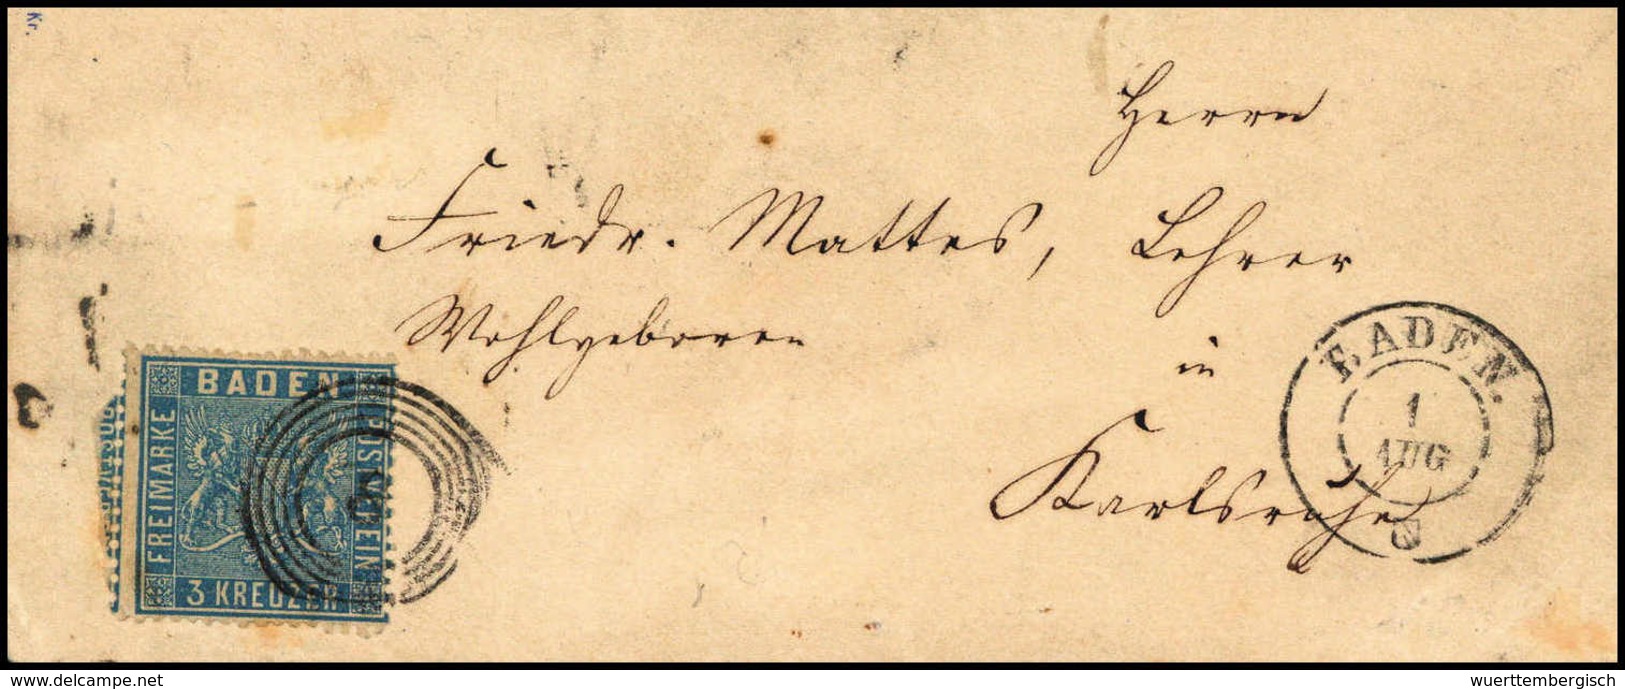 Kr.
Herrn
Friedr. Mattes, Lehrer
Wohlgeboren
in
Karlsruhe
BADEN
FREIMARKE
POSTVEREIN
3 KREUZER
BADEN.
1
AUG
delcampe.net
wuerttembergisch